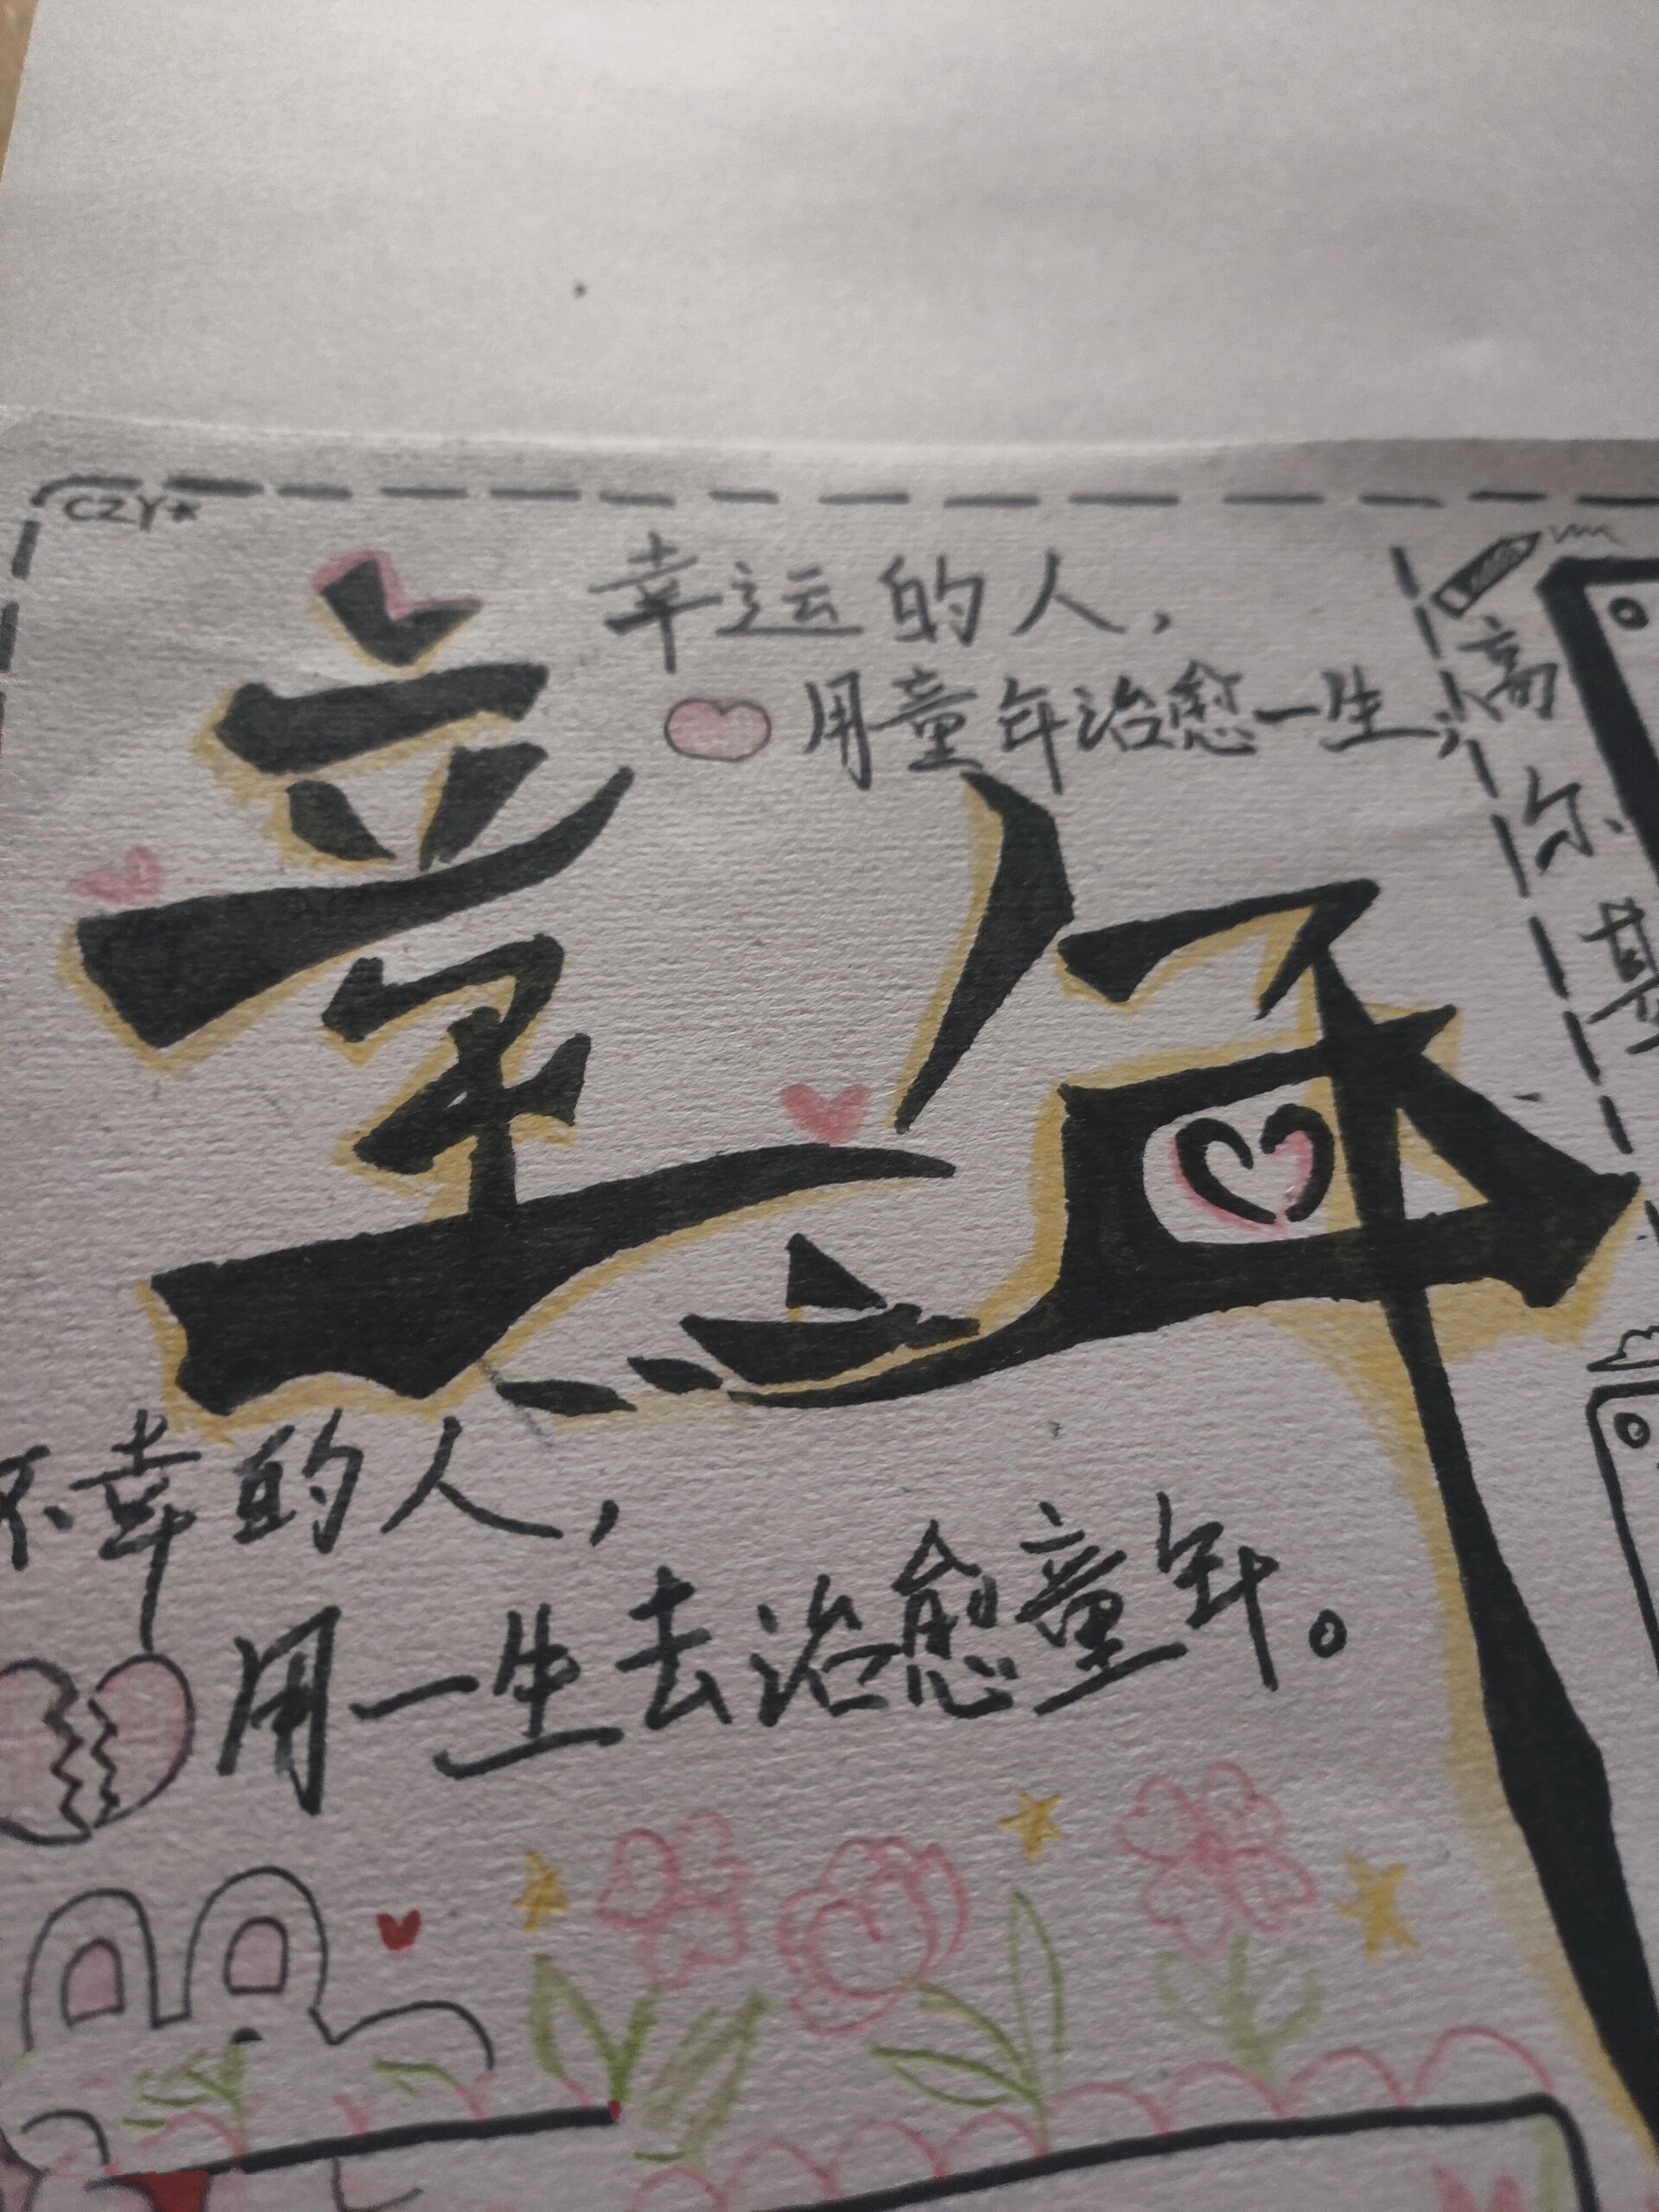 CZY*
幸运的人，
用童年治愈一生，
童年
不幸的人，
用一生去治愈童年。
你